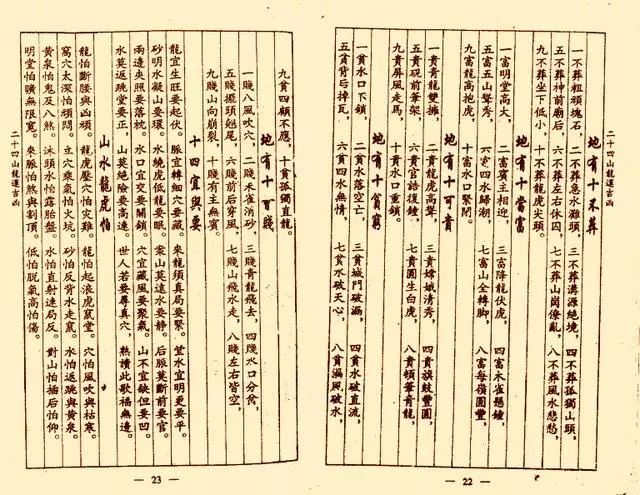 二十四山龍運吉凶
地有十不葬
一不葬粗頑塊石，二不葬急水灘頭，三不葬溝源絕境，四不葬孤獨山頭，
五不葬神前廟后，六不葬左右休囚，七不葬山崗僚亂，八不葬風水悲愁，
九不葬坐下低小，十不葬龍虎尖頭。
地有十當富
一富明堂高大，二富賓主相迎，三富降龍伏虎，四富木雀懸鐘，
五富五山聳秀，六富四水歸潮，七富山全轉脚，八富每嶺圓豐，
九富龍高抱虎，十富水口緊閉。
地有十可貴
一貴青龍雙擁，二貴龍虎高聳，三貴嫦娥清秀，四貴旗鼓豐圓，
五貴硯前筆架，六貴官誥復鐘，七貴圓生白虎，八貴頓筆青龍，
九貴屏風走馬，十貴水口重鎖。
地有十貧窮
一貧水口下鎖，二貧水落空亡，三貧城門破漏，四貧水破直流，
五貧背后掉瓦，六貧四水無情，七貧水破天心，八貧漏風破水，
— 22 —
九貧四顧不應，十貧孤獨直龍。
地有十百賤
一賤八風吹穴，二賤朱雀消砂，三賤青龍飛去，四賤水口分岔，
五賤擺頭翹尾，六賤前后穿風，七賤山飛水走，八賤左右皆空，
九賤山向崩裂，十賤有主無賓。
十四宜與要
龍宜生旺要起伏。脈宜轉細穴要藏。來龍須真局要緊。堂水宜明更要平。
砂明水凝山要環。水繞虎低龍要眠。案山莫遠水要靜。后脈莫斷前要官。
兩邊夾照要落枕。水口宜交要關鎖。穴宜藏風要聚氣。山不宜缺但要凹。
水莫返跳堂要正。山莫絕險要高連。世人若要尋真穴。熟讀此歌福無邊。
山水龍虎怕
龍怕斷腰與凶頑。龍虎壓穴怕災難。龍怕起浪虎竄堂。穴怕風吹與枯寒。
窩穴太深怕頑悶。立穴乘氣怕火坑。砂怕反背水走竄。水怕返跳與黃泉。
黃泉怕鬼及八煞。沐頭水怕露胎盤。水怕直射連局反。對山怕插后怕仰。
明堂怕曠無限寬。來脈怕煞與割頂。低怕脫氣高怕傷。
二十四山龍運吉凶
— 23 —